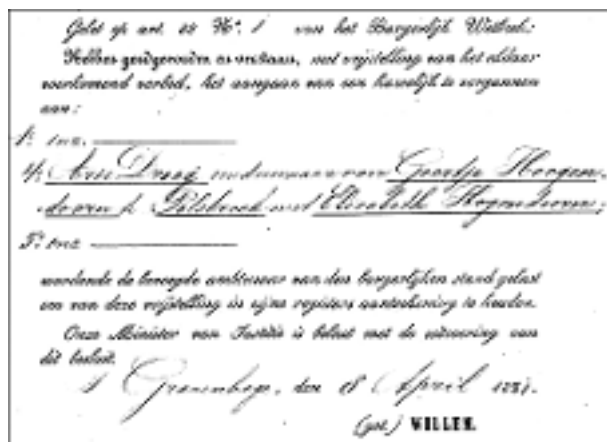 Gelet op art. 88 No. 1 van het Burgerlijk Wetboek;
Hebben goedgevonden en verstaan, met vrijstelling van het aldaar
voorkomend verbod, het aangaan van een huwelijk te vergunnen
aan:
1o. enz.
4o. Arie Draag weduwnaar van Geertje Hoogen-
doorn te Polsbroek met Elisabeth Hogendoorn;
5o. enz
wordende de bevoegde ambtenaar van den burgerlijken stand gelast
om van deze vrijstelling in zijne registers aanteekening te houden.
Onze Minister van Justitie is belast met de uitvoering van
dit besluit.
's Gravenhage, den 18 April
(get.) WILLEM.